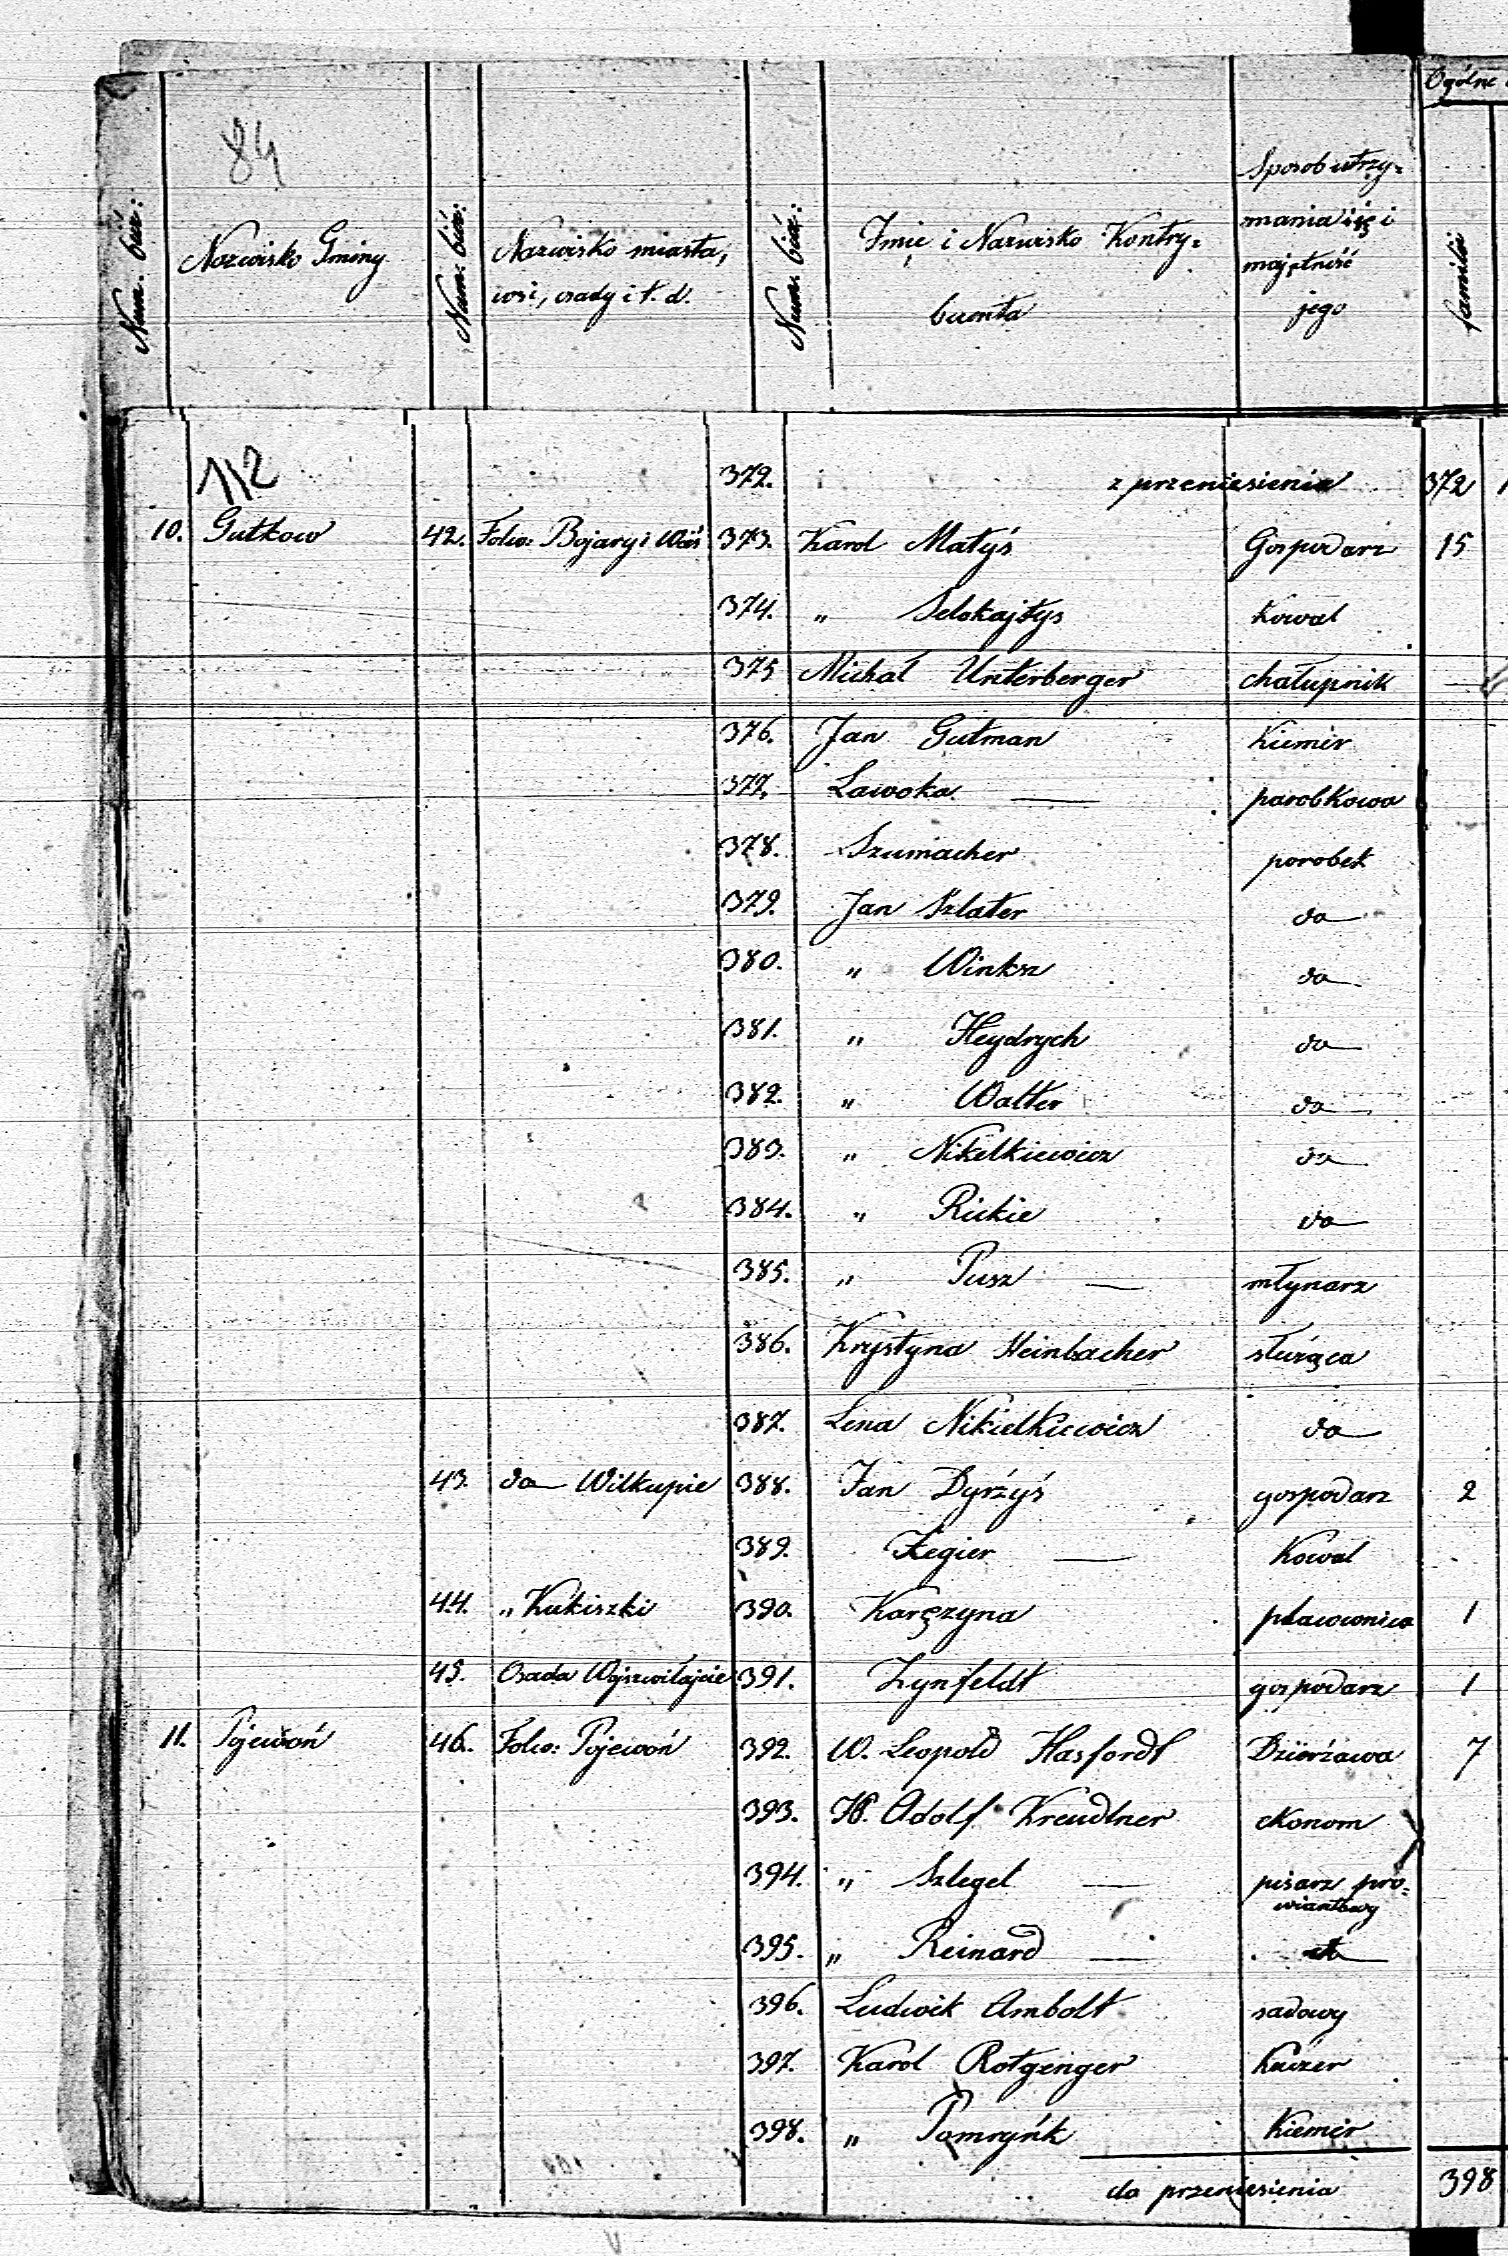 84
Ogólne
Num. biéż:
Nazwisko Gminy
Num: biéż:
Nazwisko miasta,
wsi, osady i t. d.
Num: biéż:
Imie i Nazwisko Kontry=
buenta
Sposob utrzy=
mania się i
majętność
jego
familii
112
372. z przeniesienia 372
10. Gutkow 42. Folw: Bojary i Wieś 373. Karol Matyś Gospodarz 15
374. " Selokajtys Kowal
375 Michał Unterberger chałupnik
376. Jan Gutman Kiemer
377. Lawoka — parobkowa
378. Szumacher porobek
379. Jan Szlater do
380. " Winksz do
381. " Heydrych do
382. " Walter do
383. " Nikelkiewicz do
384. " Rickie do
385. " Pusz — młynarz
386. Krystyna Heinbacher służąca
387. Lena Nikielkiewicz do
43. do Wilkupie 388. Jan Dyrżyś gospodarz 2
389. Zegier — Kowal
44. " Kukiszki 390. Karęzyna pławownica 1
45. Osada Wojszwiłajcie 391. Zynfeldt gospodarz 1
11. Pojewoń 46. Folw: Pojewoń 392. W. Leopold Hasfordt Dzierżawa 7
393. Adolf Kreudlner ekonom
394. " Szlegel — pisarz pro=
wiantowy
395. " Reinard — do
396. Ludwik Ambolt sadowy
397. Karol Rotgenger Kuczer
398. " Pomryńk Kiemer
do przeniesienia 398